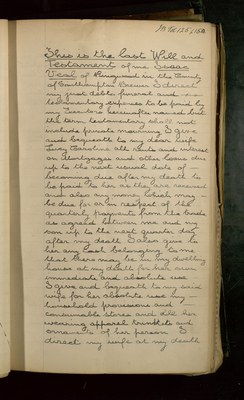 This is the last Will and
Testament of me Isaac
Veal of Ringwood in the County
of Southampton Brewer I direct
my just debts funeral and
testamentary expenses to be paid by
my Executors hereinafter named but
the term testamentary shall not
include private mourning I give
and bequeath to my dear wife
Lucy Caroline all rents and interest
on Mortgages and other loans due
up to the next usual date of
becoming due after my death to
be paid to her as they are received
and also any monies that may
be due for or in respect of the
quarterly payments from the trade
as agreed between me and my
son up to the next quarter day
after my death I also give to
her any Cash belonging to me
that there may be in my dwelling
house at my death for her own
immediate and absolute use
I give and bequeath to my said
wife for her absolute use my
household provisions and
consumable stores and all her
wearing apparel trinkets and
ornaments of her person I
direct my wife at my death